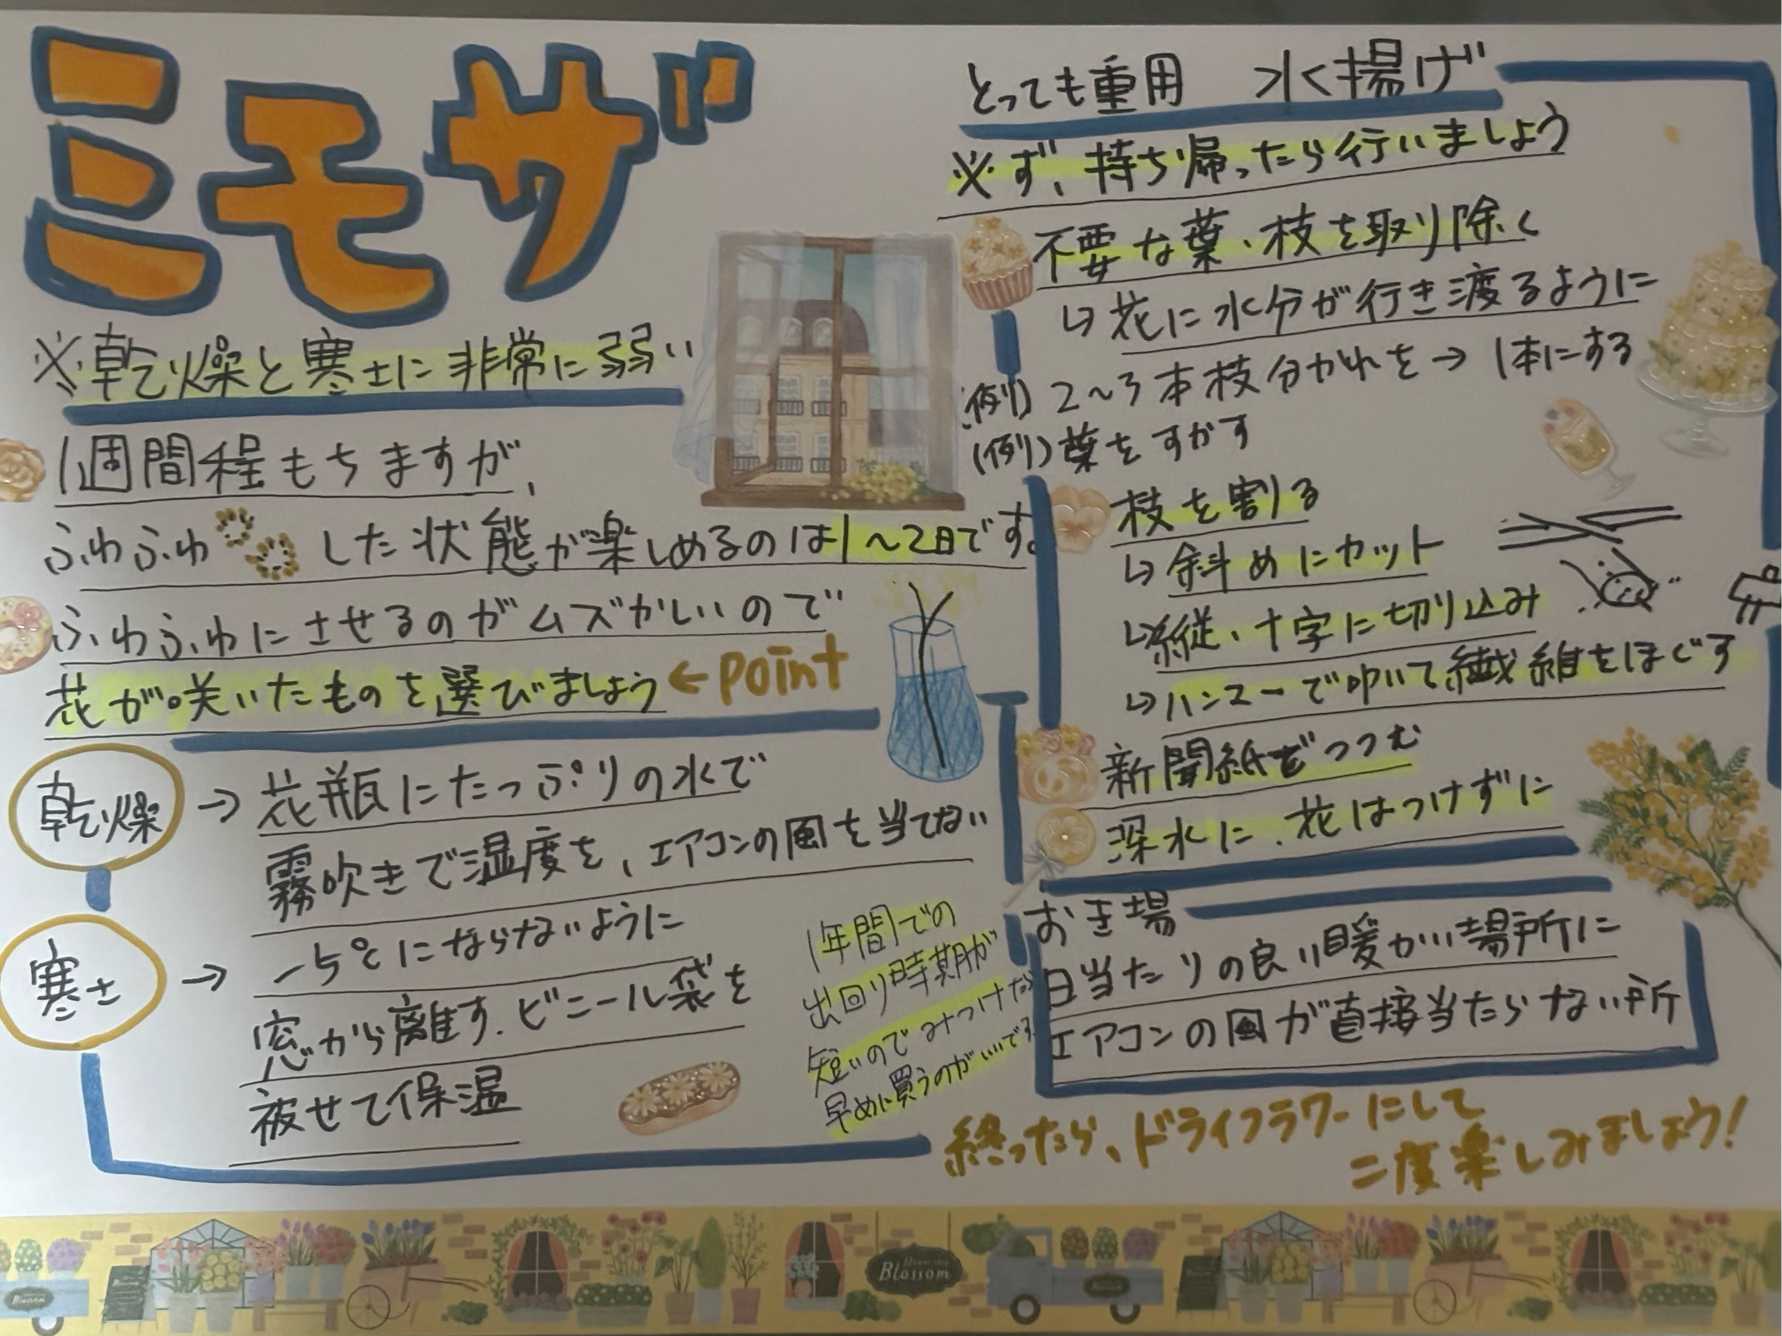 ミモザ
※乾燥と寒さに非常に弱い
1週間程もちますが、
ふわふわ した状態が楽しめるのは1〜2日です。
ふわふわにさせるのがムズかしいので
花が咲いたものを選びましょう ←point
乾燥 → 花瓶にたっぷりの水で
霧吹きで湿度を、エアコンの風を当てない
寒さ → -5℃にならないように
窓から離す、ビニール袋を
被せて保温
1年間での
出回り時期が
短いのでみつけた
早めに買うのがいいです
とっても重用 水揚げ
※ず、持ち帰ったら行いましょう
不要な葉・枝を取り除く
↳花に水分が行き渡るように
(例) 2〜3本枝分かれを→1本にする
(例) 葉をすかす
枝を割る
↳斜めにカット
↳縦・十字に切り込み
↳ハンマーで叩いて繊維をほぐす
新聞紙でつつむ
深水に、花はつけずに
おき場
日当たりの良い暖かい場所に
エアコンの風が直接当たらない所
終ったら、ドライフラワーにして
二度楽しみましょう!
Blossom